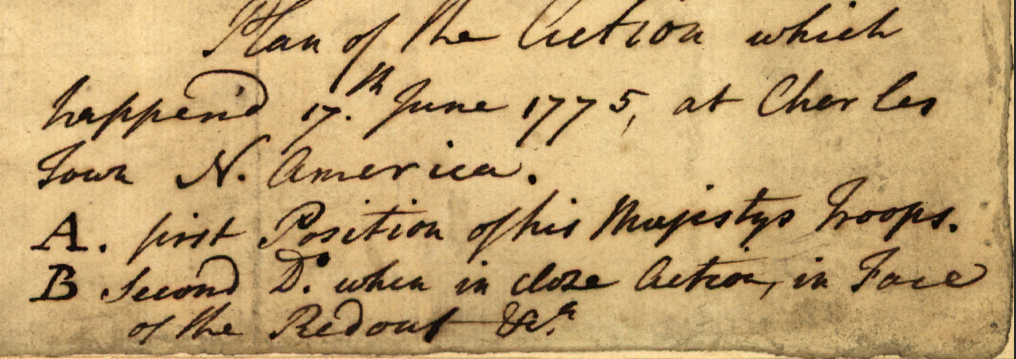 Plan of the Action which
happen'd 17.th June 1775, at Charles
Town N. America.
A. first Position of his Majestys Troops.
B Second Do. when in close Action, in Face
of the Redout &c.a